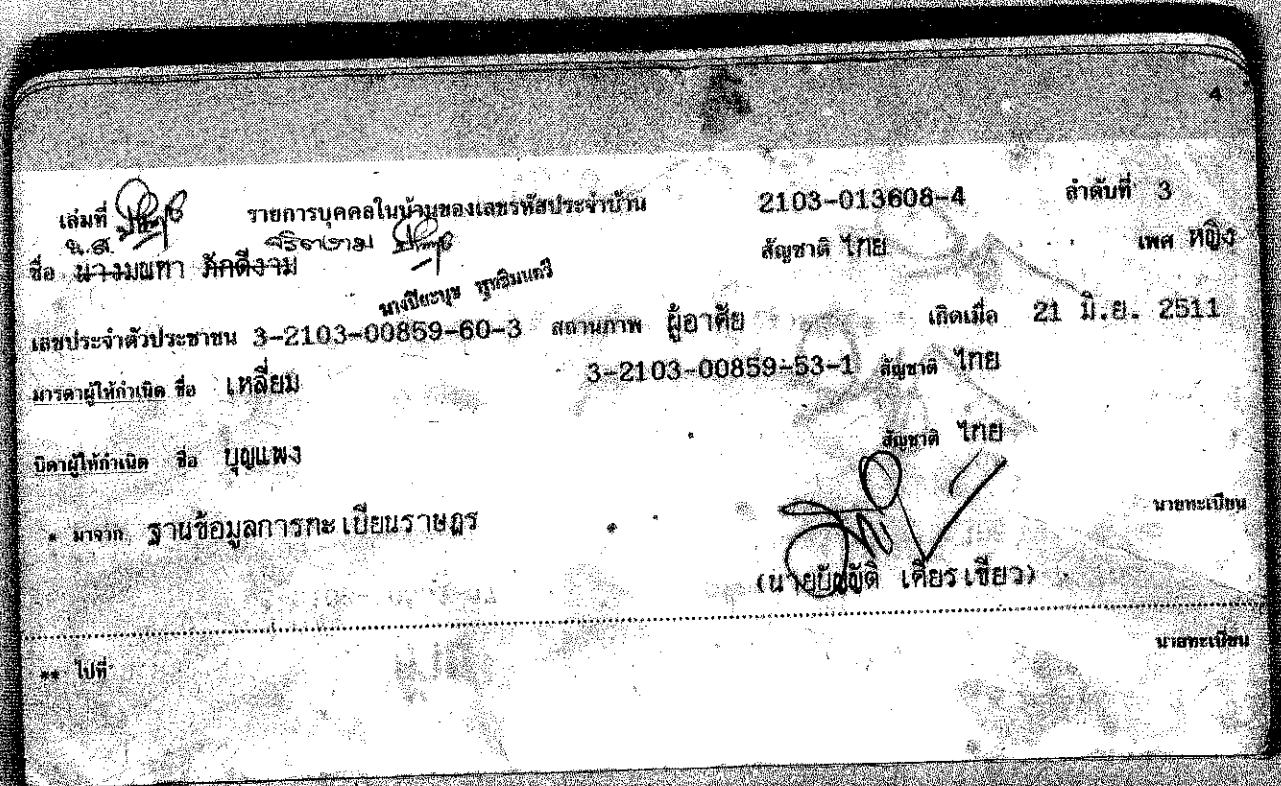 4
เล่มที่ รายการบุคคลในบ้านของเลขรหัสประจำบ้าน 2103-013608-4 ลำดับที่ 3
น.ส.
ชื่อ นางมณฑา ภักดีงาม สัญชาติ ไทย เพศ หญิง
นางปิยะนุช
เลขประจำตัวประชาชน 3-2103-00859-60-3 สถานภาพ ผู้อาศัย เกิดเมื่อ 21 มิ.ย. 2511
มารดาผู้ให้กำเนิด ชื่อ เหลี่ยม 3-2103-00859-53-1 สัญชาติ ไทย
บิดาผู้ให้กำเนิด ชื่อ บุญแพง สัญชาติ ไทย
* มาจาก ฐานข้อมูลการทะเบียนราษฎร นายทะเบียน
(นายบัญญัติ เคียรเขียว)
** ไปที่ นายทะเบียน